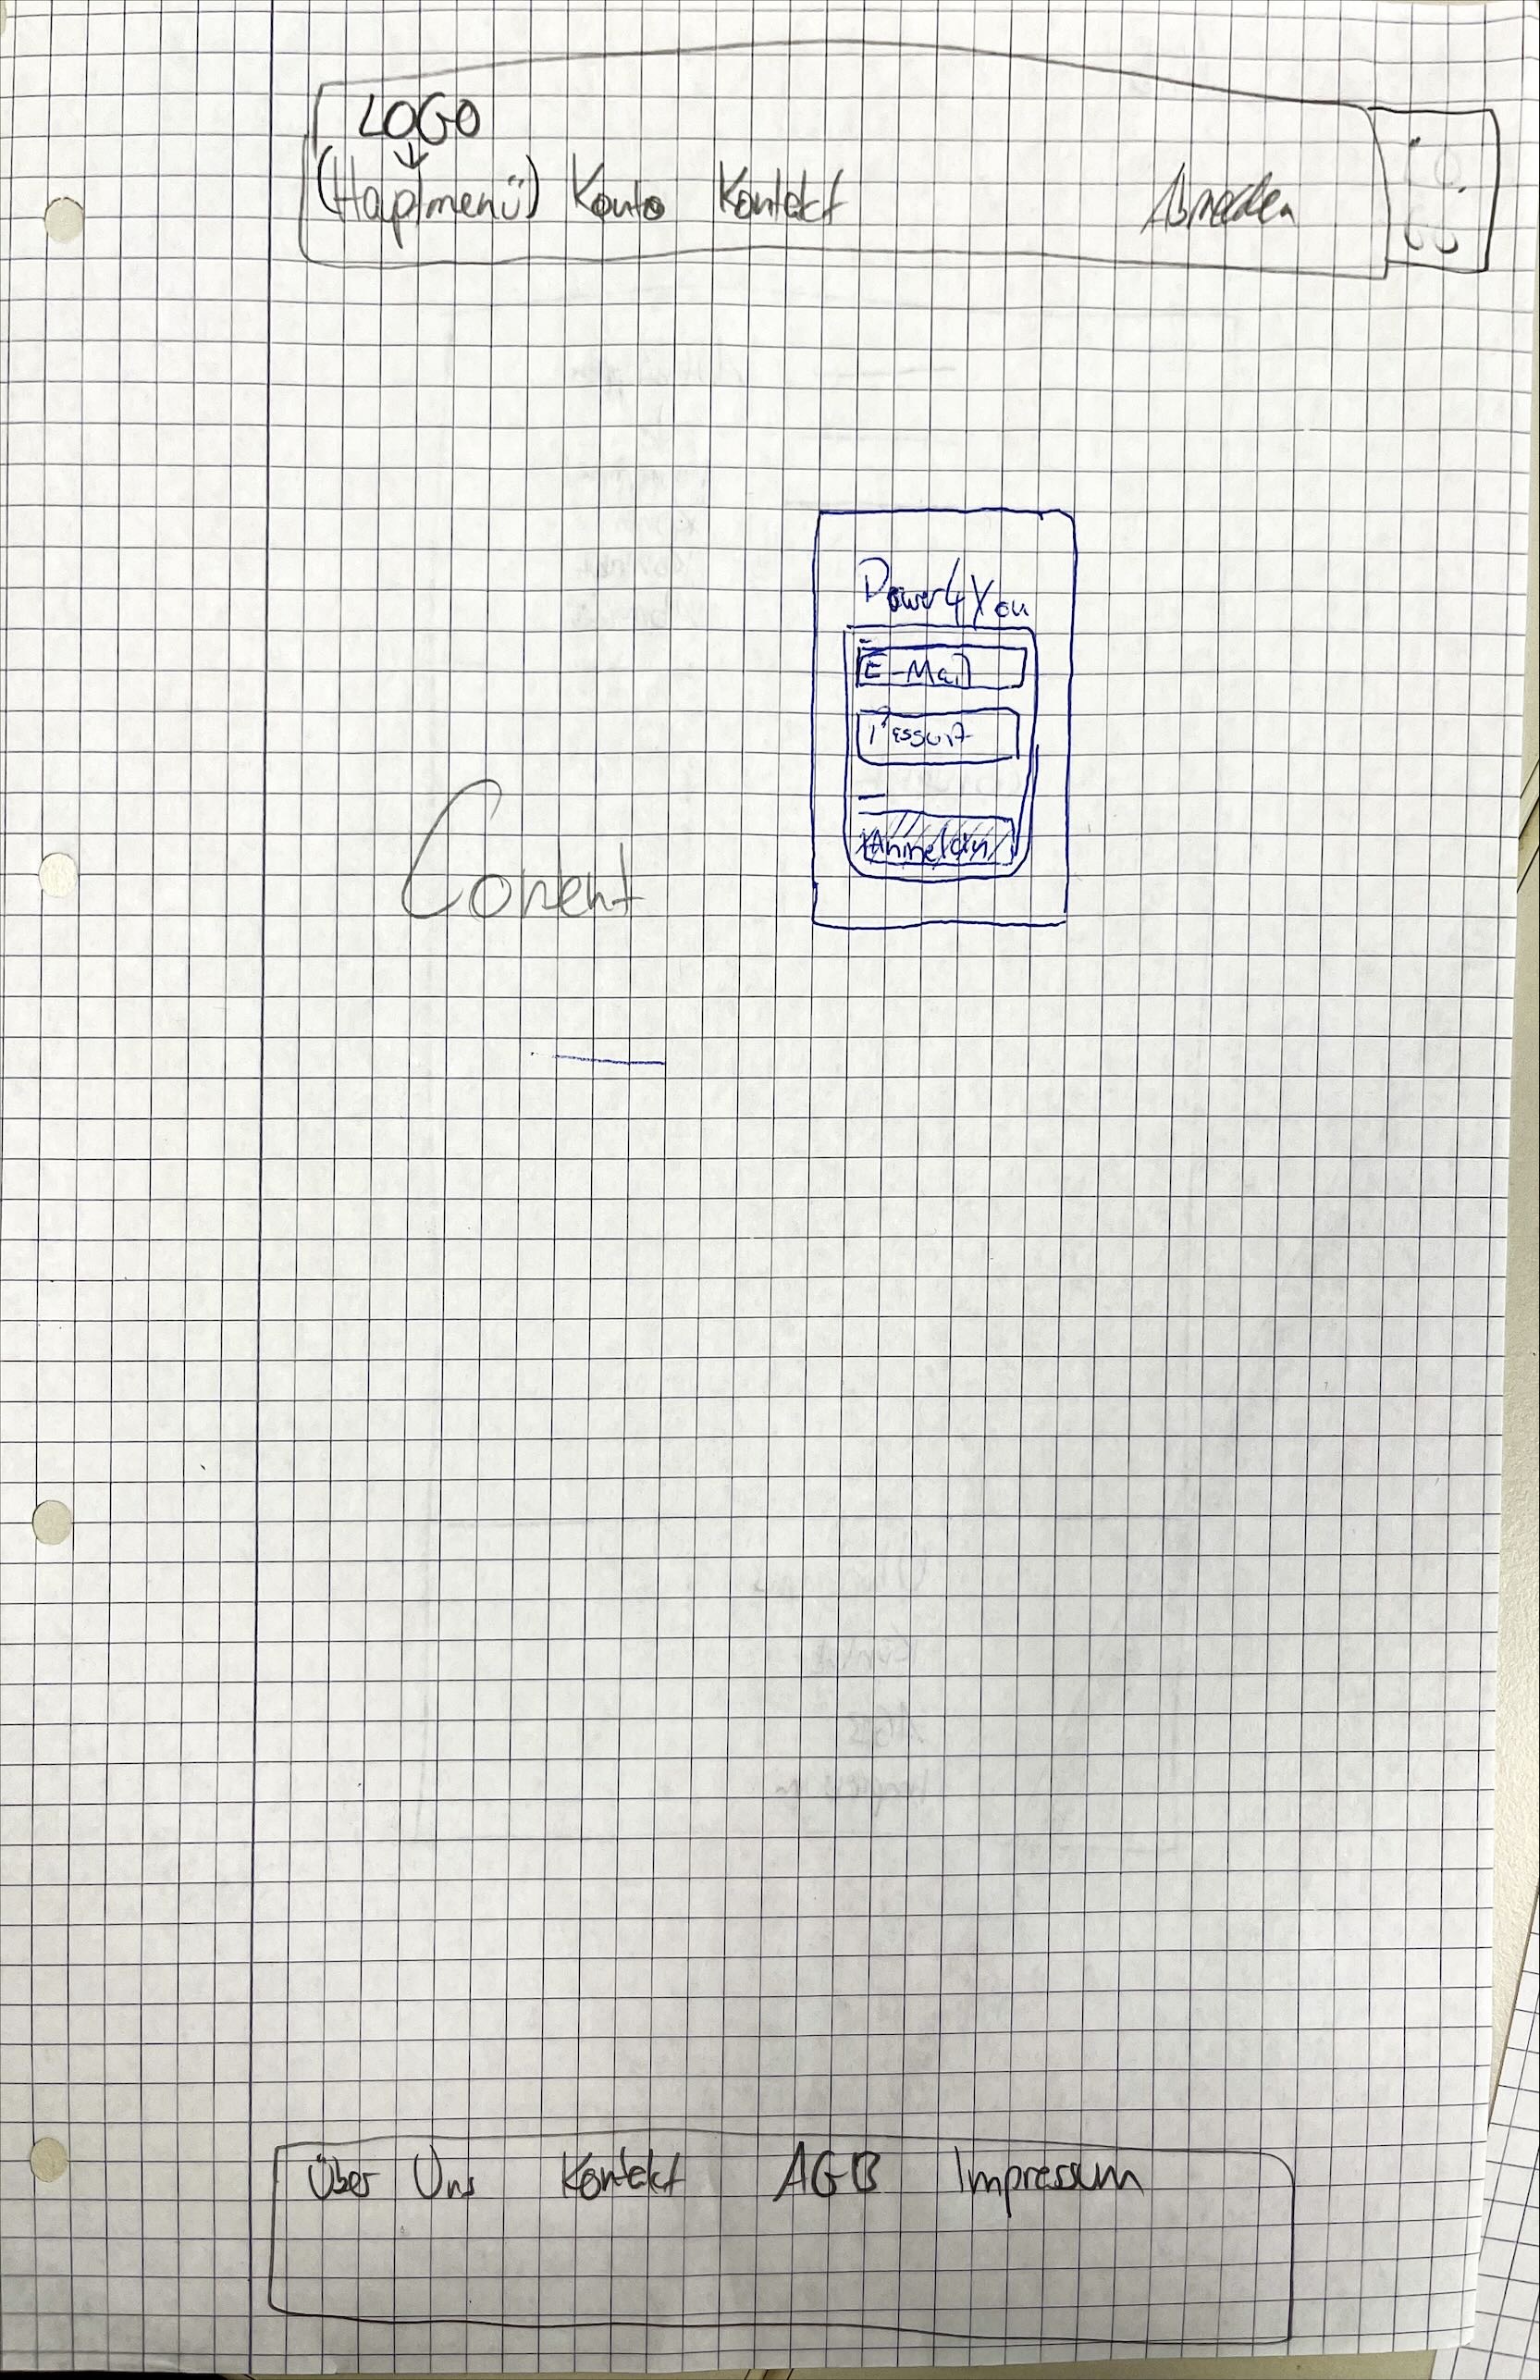 LOGO
(Hauptmenü) Konto Kontakt Abmelden
Power4You
E-Mail
Passwort
Anmelden
Content
Über Uns Kontakt AGB Impressum